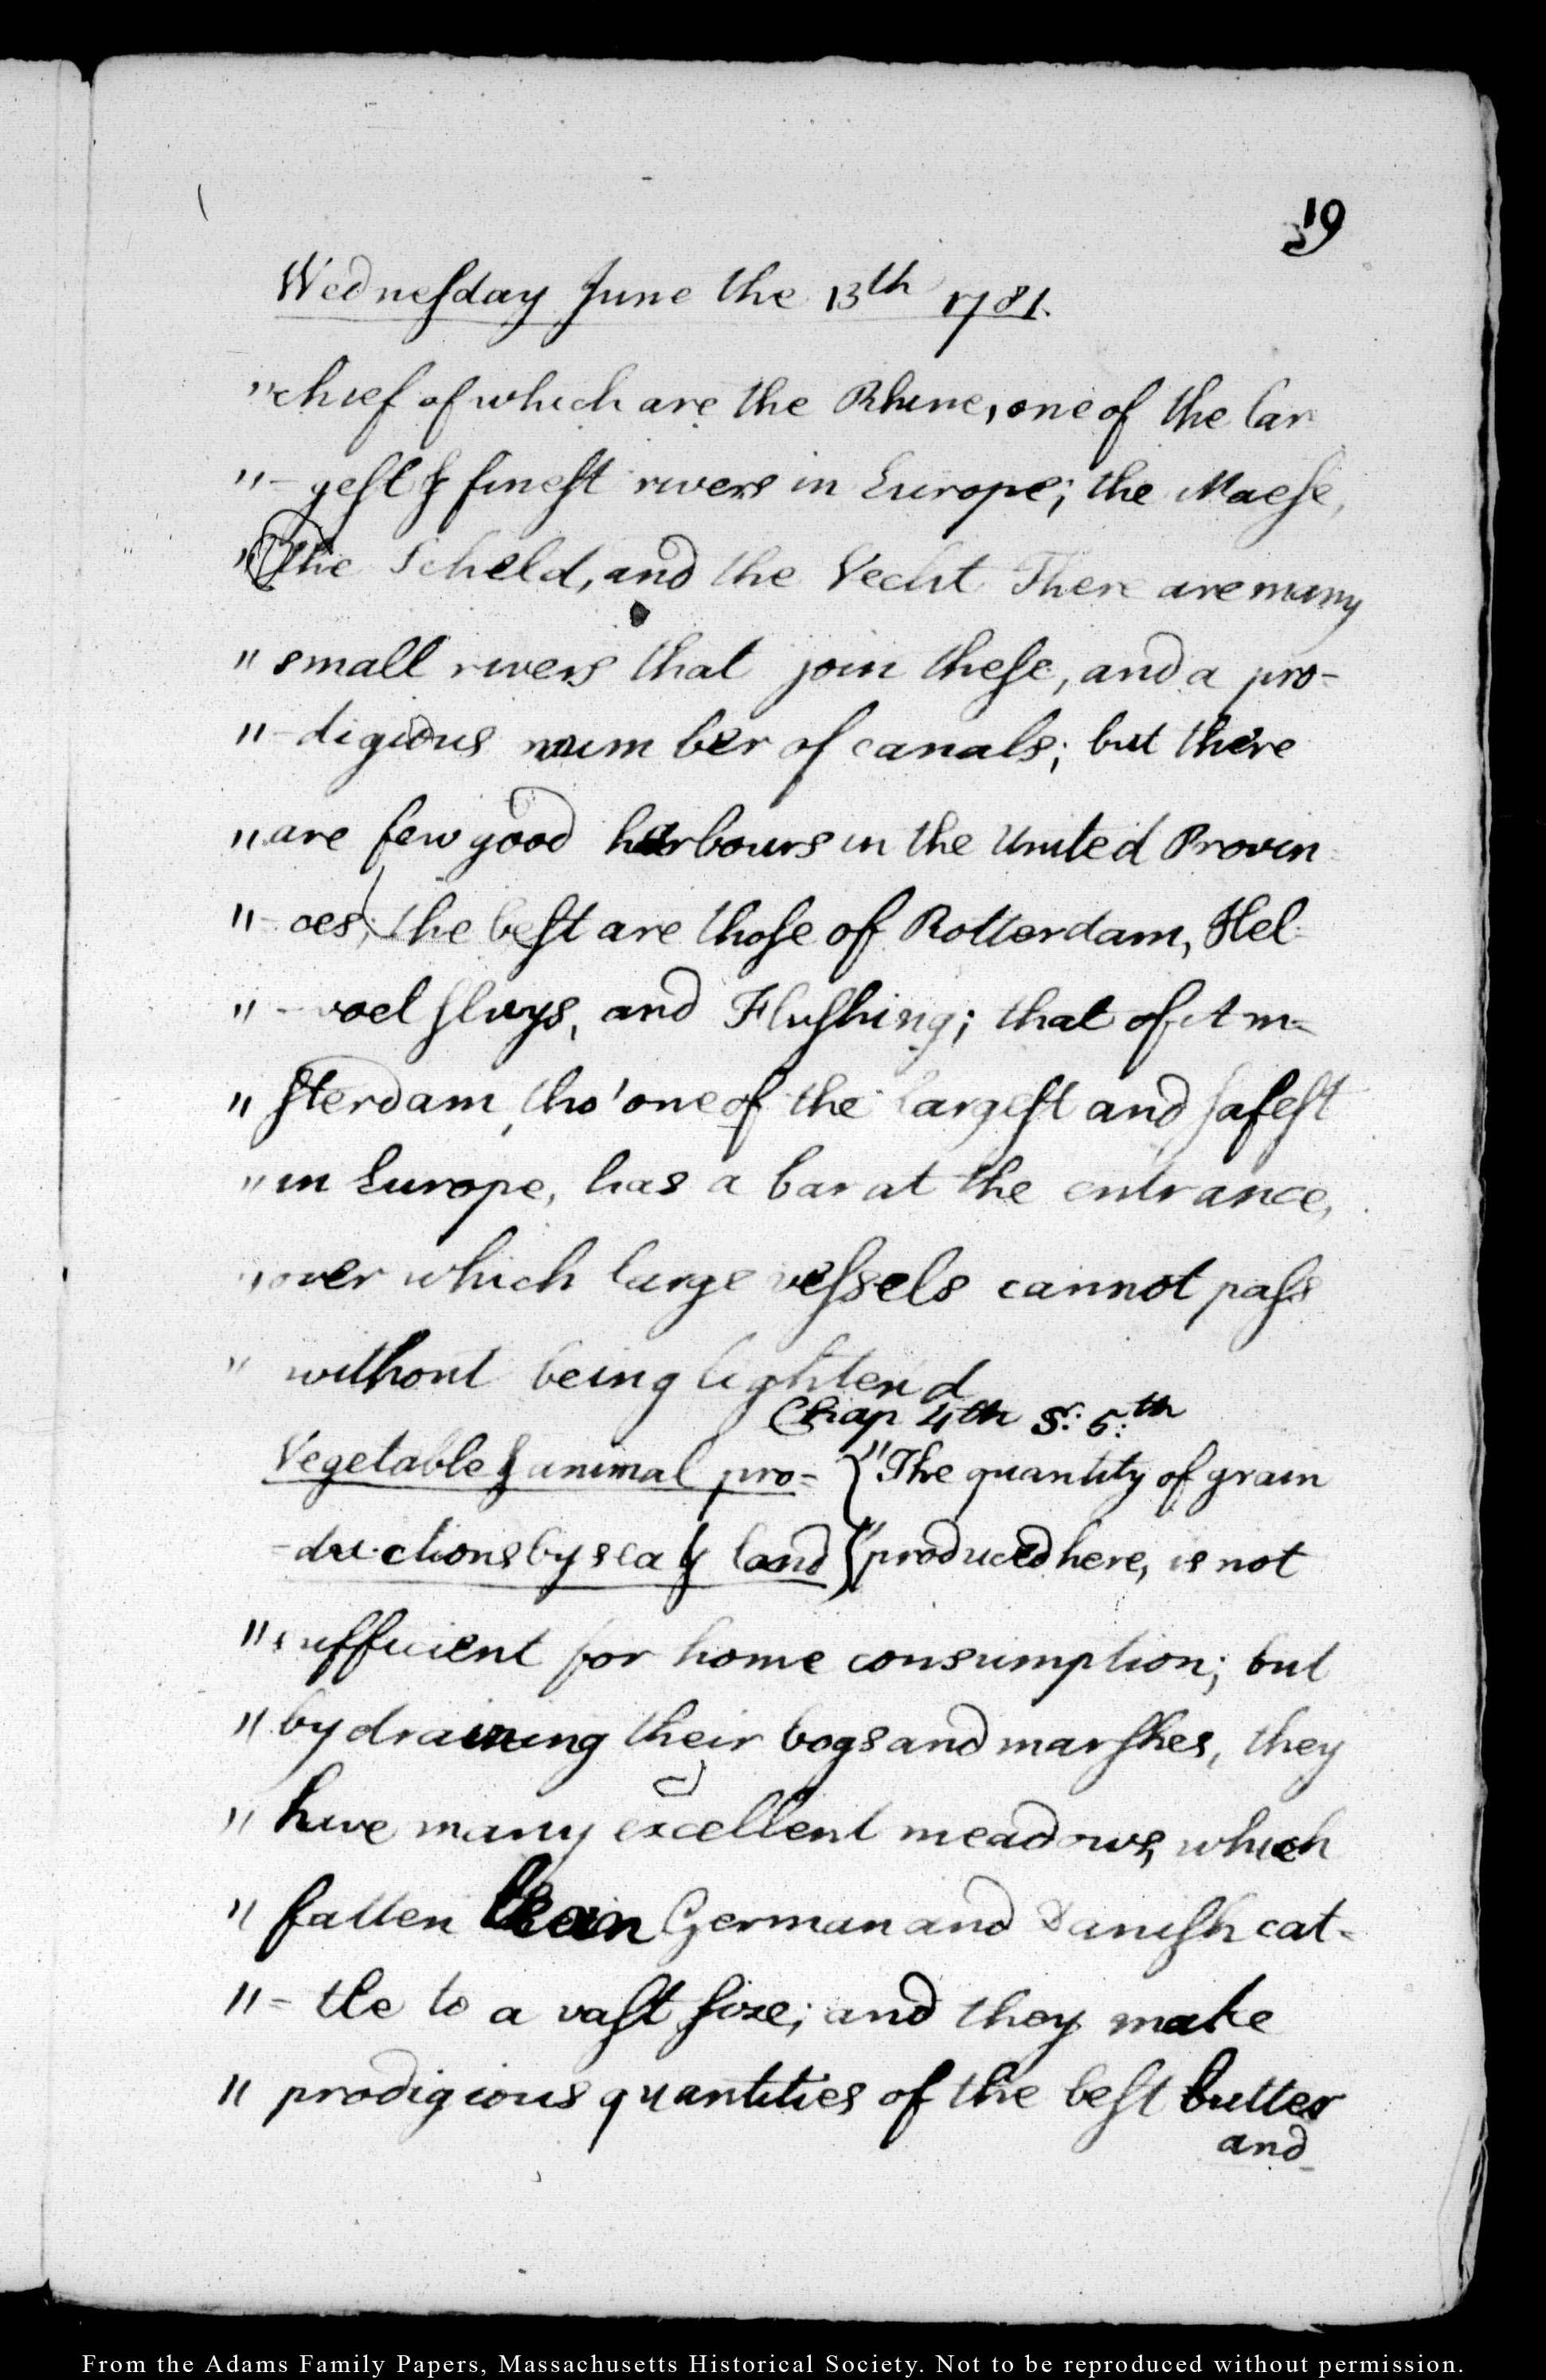 19
Wednesday June the 13th 1781.
"chief of which are the Rhine, one of the lar
"-gest & finest rivers in Europe; the Maese,
"the Scheld, and the Vecht There are many
"small rivers that join these, and a pro-
"-digious number of canals; but there
"are few good harbours in the United Provin-
"-ces; the best are those of Rotterdam, Hel-
"-voetsluys, and Flushing; that of Am=
"sterdam, tho' one of the largest and safest
"in Europe, has a bar at the entrance,
"over which large vessels cannot pass
"without being lighten'd
Chap 4th S: 5:th
Vegetable & animal pro= } "The quantity of grain
-ductions by sea & land } "produced here, is not
"sufficient for home consumption; but
"by draining their bogs and marshes, they
"have many excellent meadows, which
"fatten lean German and Danish cat-
"=tle to a vast size; and they make
"prodigious quantities of the best butter
and
From the Adams Family Papers, Massachusetts Historical Society. Not to be reproduced without permission.